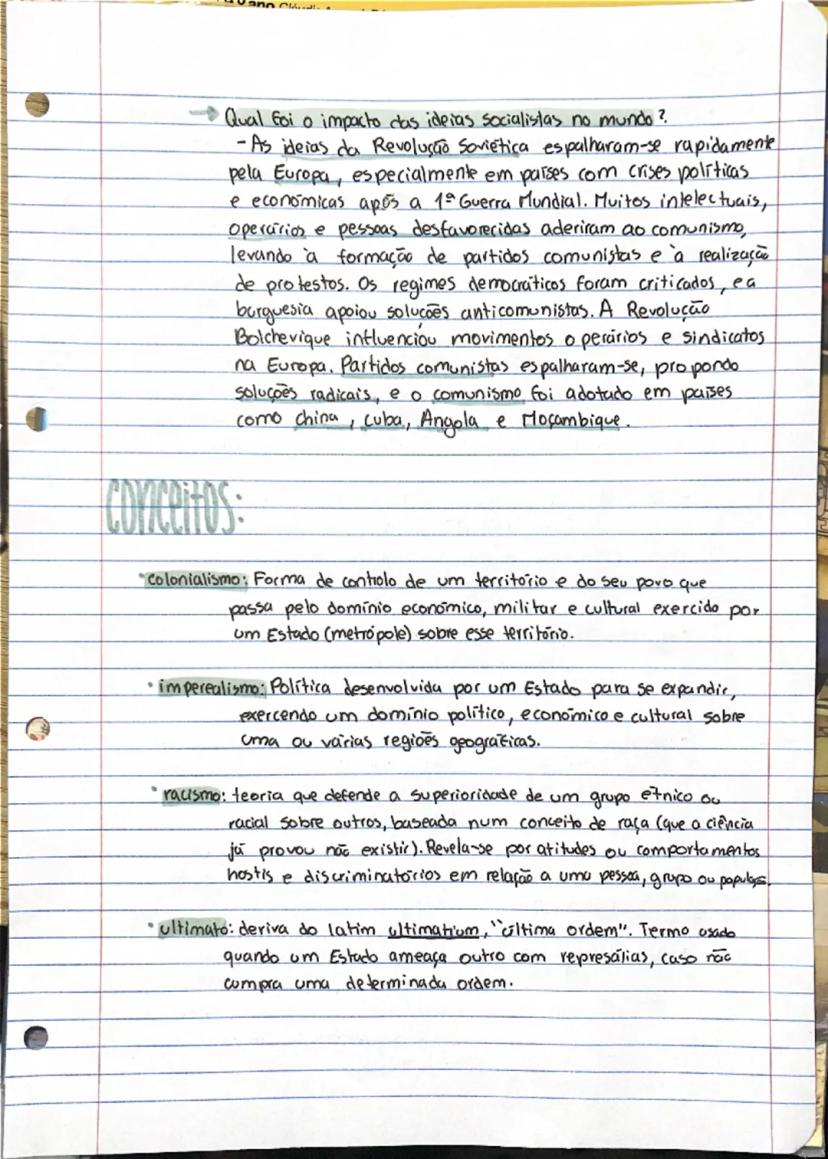 Qual foi o impacto das ideias socialistas no mundo?
- As ideias da Revolução Soviética espalharam-se rapidamente
pela Europa, especialmente em países com crises políticas
e económicas após a 1ª Guerra Mundial. Muitos intelectuais,
operários e pessoas desfavorecidas aderiram ao comunismo,
levando à formação de partidos comunistas e à realização
de protestos. Os regimes democráticos foram criticados, e a
burguesia apoiou soluções anticomunistas. A Revolução
Bolchevique influenciou movimentos operários e sindicatos
na Europa. Partidos comunistas espalharam-se, propondo
soluções radicais, e o comunismo foi adotado em países
como china, cuba, Angola e Moçambique.
conceitos:
• colonialismo: Forma de controlo de um território e do seu povo que
passa pelo domínio económico, militar e cultural exercido por
um Estado (metrópole) sobre esse território.
• imperealismo: Política desenvolvida por um Estado para se expandir,
exercendo um domínio político, económico e cultural sobre
uma ou várias regiões geográficas.
• racismo: teoria que defende a superioridade de um grupo étnico ou
racial sobre outros, baseada num conceito de raça (que a ciência
já provou não existir). Revela-se por atitudes ou comportamentos
hostis e discriminatórios em relação a uma pessoa, grupo ou
• ultimato: deriva do latim ultimatium, "última ordem". Termo usado
quando um Estado ameaça outro com represálias, caso não
cumpra uma determinada ordem.